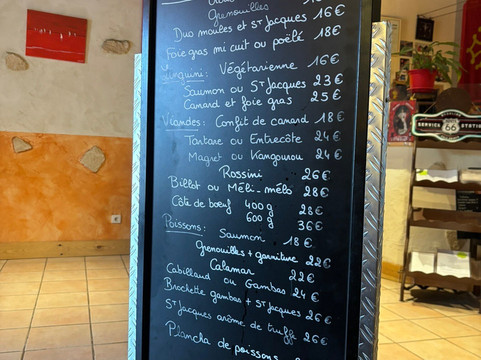 Grenouilles
Duo moules et ST Jacques 16€
Foie gras mi cuit ou poêlé 18€
Linguini: Végétarienne 16€
Saumon ou ST Jacques 23€
Canard et foie gras 25€
Viandes: Confit de canard 18€
Tartare ou Entrecôte 24€
Magret ou Kangourou 24€
Rossini 26€
Billot ou Méli-mélo 28€
Côte de bœuf 400g 28€
600g 36€
Poissons: Saumon 18€
Grenouilles + garniture 22€
Calamar 22€
Cabillaud ou Gambas 24€
Brochette gambas + ST Jacques 26€
ST Jacques arôme de truffe 26€
Plancha de poissons
SERVICE 66 STATION